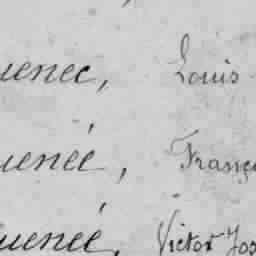 uenec, Louis
uenée, Franç
uenée, Victor Jos